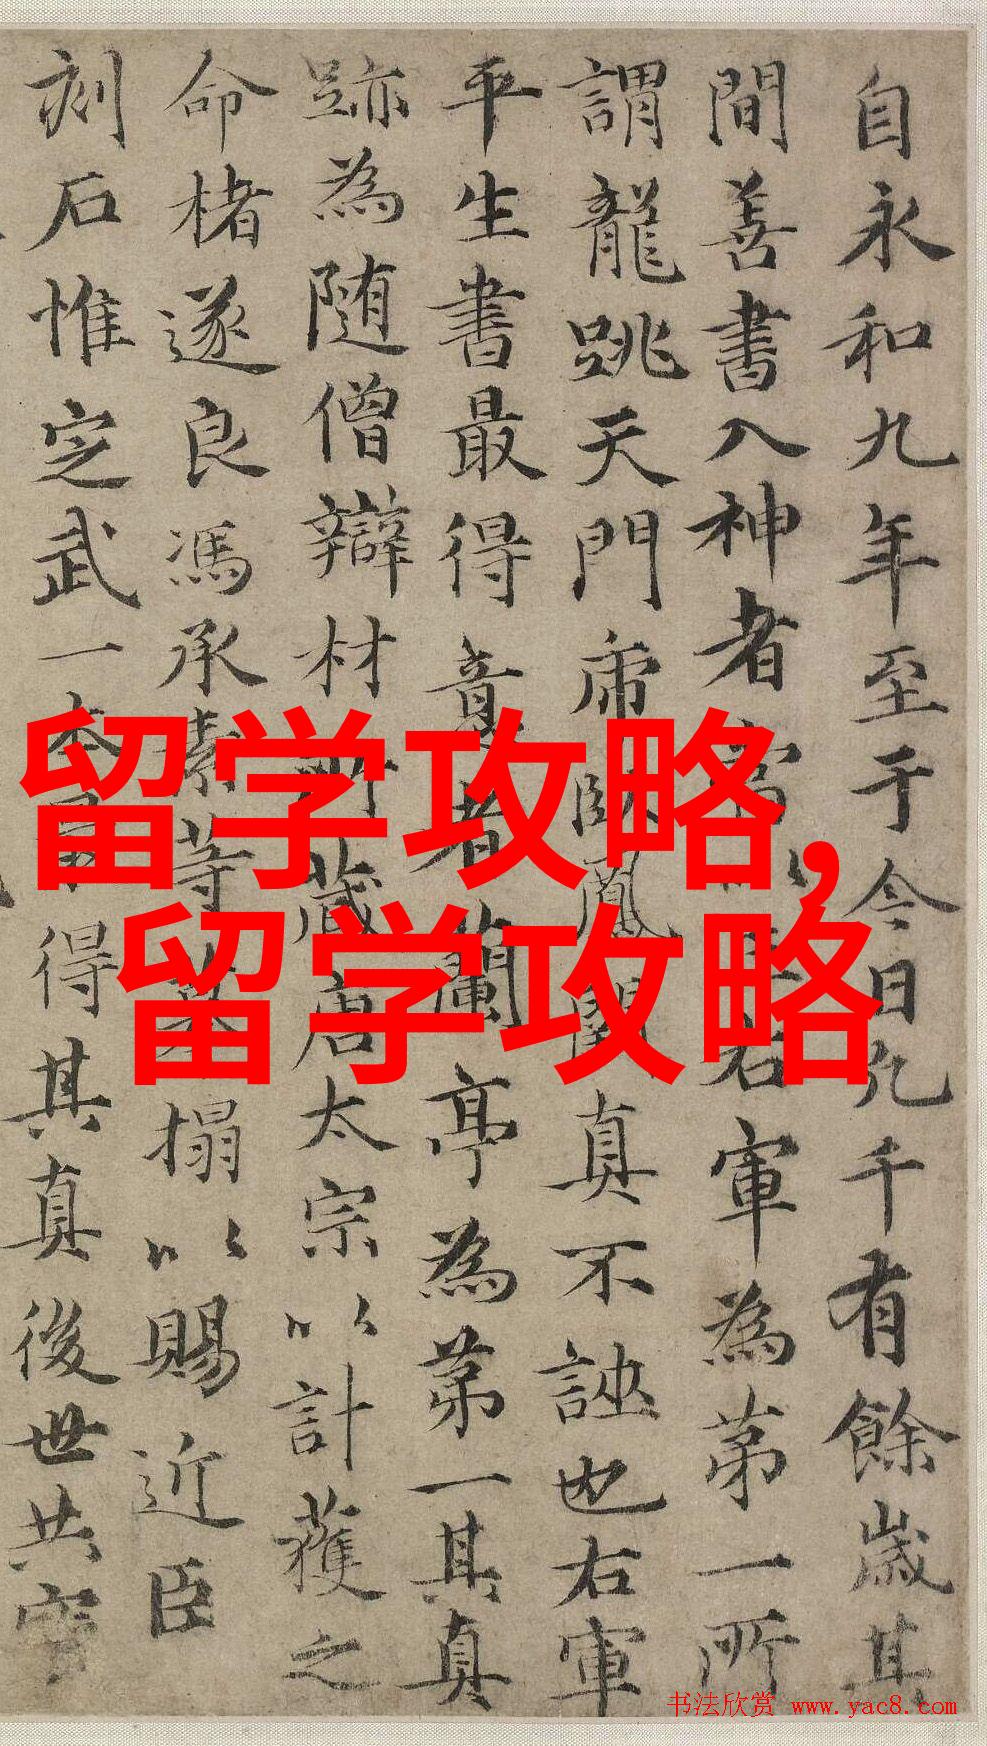 自永和九年至于今日凡千有餘歲其
間善書入神者當以王右軍為第一所
謂龍跳天門虎卧鳳閣真不誣也右軍
平生書最得意者蘭亭為第一其真
跡為随僧辯材所藏唐太宗以計獲之
命楮遂良馮承素等搨以賜近臣
刻石惟定武一本得其真後世共寳
留学攻略，
留学攻略
书法欣赏 www.yac8.com